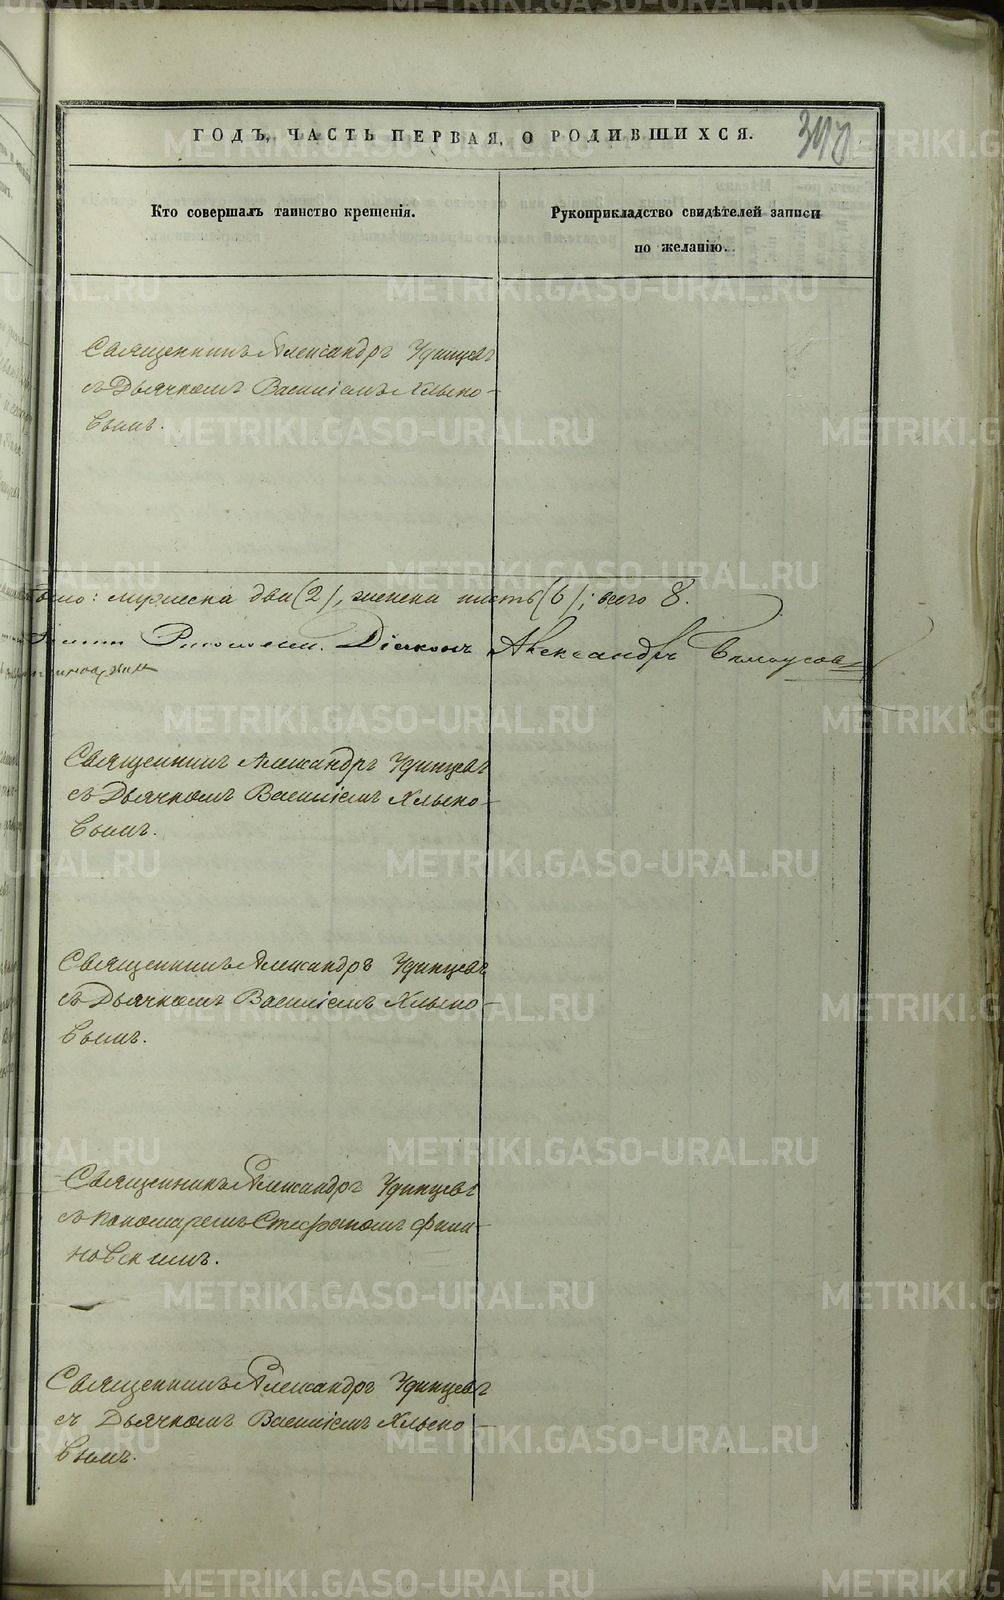 ГОДЪ, ЧАСТЬ ПЕРВАЯ, О РОДИВШИХСЯ.
Кто совершалъ таинство крещенія.
Рукоприкладство свидѣтелей записи
по желанію.
Священникъ Александръ Удинцевъ
съ Дьячкомъ Василіемъ Хлыно-
вымъ.
мужеска два (2), женска шесть (6); всего 8.
Діаконъ Александръ Белоусовъ
Священникъ Александръ Удинцевъ
съ Дьячкомъ Василіемъ Хлыно-
вымъ.
Священникъ Александръ Удинцевъ
съ Дьячкомъ Василіемъ Хлыно-
вымъ.
Священникъ Александръ Удинцевъ
съ Пономаремъ Стефаномъ Фили-
новскимъ.
Священникъ Александръ Удинцевъ
съ Дьячкомъ Василіемъ Хлыно-
вымъ.
METRIKI.GASO-URAL.RU